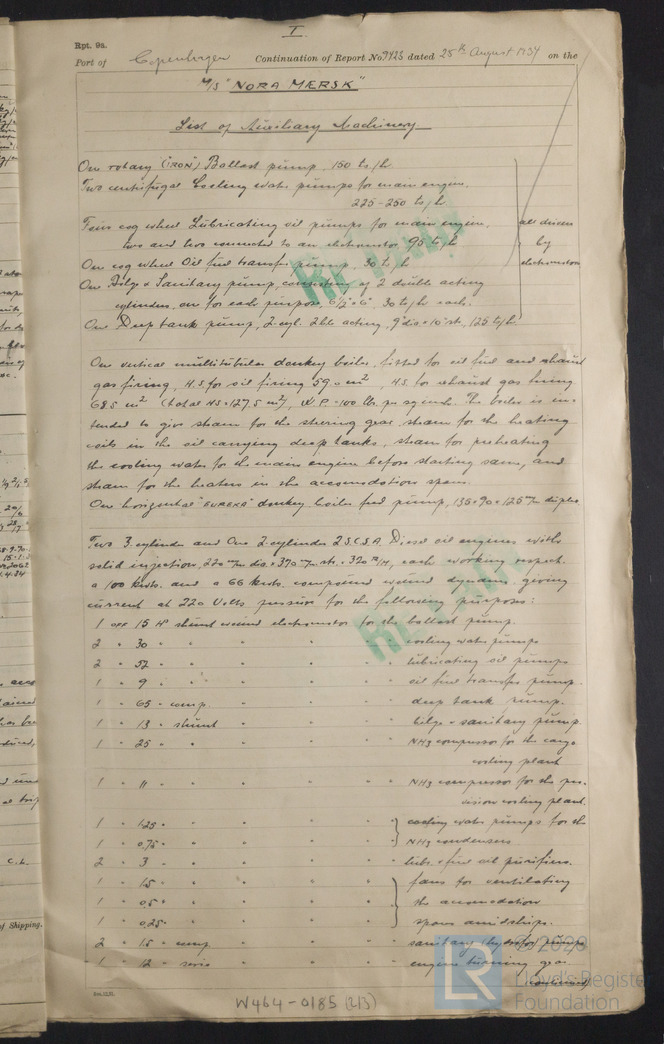 I
Rpt. 9a.
Port of Copenhagen Continuation of Report No 9423 dated 25th August 1934 on the
M/S "NORA MÆRSK"
List of Auxiliary Machinery
One rotary (IRON) Ballast pump, 150 ts/h
Two centrifugal Cooling water pumps for main engine.
225-250 ts/h
Four cog wheel Lubricating oil pumps for main engine, all driven
two and two connected to an electromotor, 95 ts/h by
One cog wheel Oil fuel transfer pump, 30 ts/h electromotors
One Bilge & Sanitary pump, consisting of 2 double acting
cylinders, one for each purpose, 30 ts/h each.
One Deep tank pump, 2-cyl. 2ble acting, 9" dia × 10" st., 125 ts/h
One vertical multitubular donkey boiler, fitted for oil fuel and exhaust
gas firing, H.S. for oil firing 59 m², H.S. for exhaust gas firing
68.5 m² (total HS = 127.5 m²), W.P. = 100 lbs. pr sq inch. The boiler is in-
tended to give steam for the steering gear, steam for the heating
coils in the oil carrying deep tanks, steam for preheating
the cooling water for the main engine before starting same, and
steam for the heaters in the accomodation spaces.
One horizontal "EUREKA" donkey boiler feed pump, 135×90×125 m/m duplex
Two 3-cylinder and One 2-cylinder 2.S.C.S.A. Diesel oil engines with
solid injection, 220 m/m dia. × 370 m/m st., each working respect.
a 100 kwts. and a 66 kwts. compound wound dynamo, giving
current at 220 Volts pressure for the following purposes:
1 off 15 HP shunt wound electromotor for the ballast pump.
2 " 30 " " " " " " cooling water pumps
2 " 52 " " " " " " lubricating oil pumps
1 " 9 " " " " " " oil fuel transfer pump.
1 " 65 " comp. " " " " deep tank pump.
1 " 13 " shunt " " " " bilge & sanitary pump.
1 " 25 " " " " " " NH3 compressor for the cargo
cooling plant
1 " 11 " " " " " " NH3 compressor for the pro-
vision cooling plant.
1 " 1,25 " " " " " " cooling water pumps for the
1 " 0,75 " " " " " " NH3 condensers
2 " 3 " " " " " " lub. & fuel oil purifiers.
1 " 1,5 " " " " " " fans for ventilating
1 " 0,5 " " " " " " the accomodation
1 " 0,25 " " " " " " spaces amidships.
2 " 1.5 " comp. " " " " sanitary pumps
1 " 12 " serie " " " " engine turning gear
(continued)
W464-0185 (2/3)
LR
© 2020
Lloyd's Register
Foundation
of Shipping.
C.L.